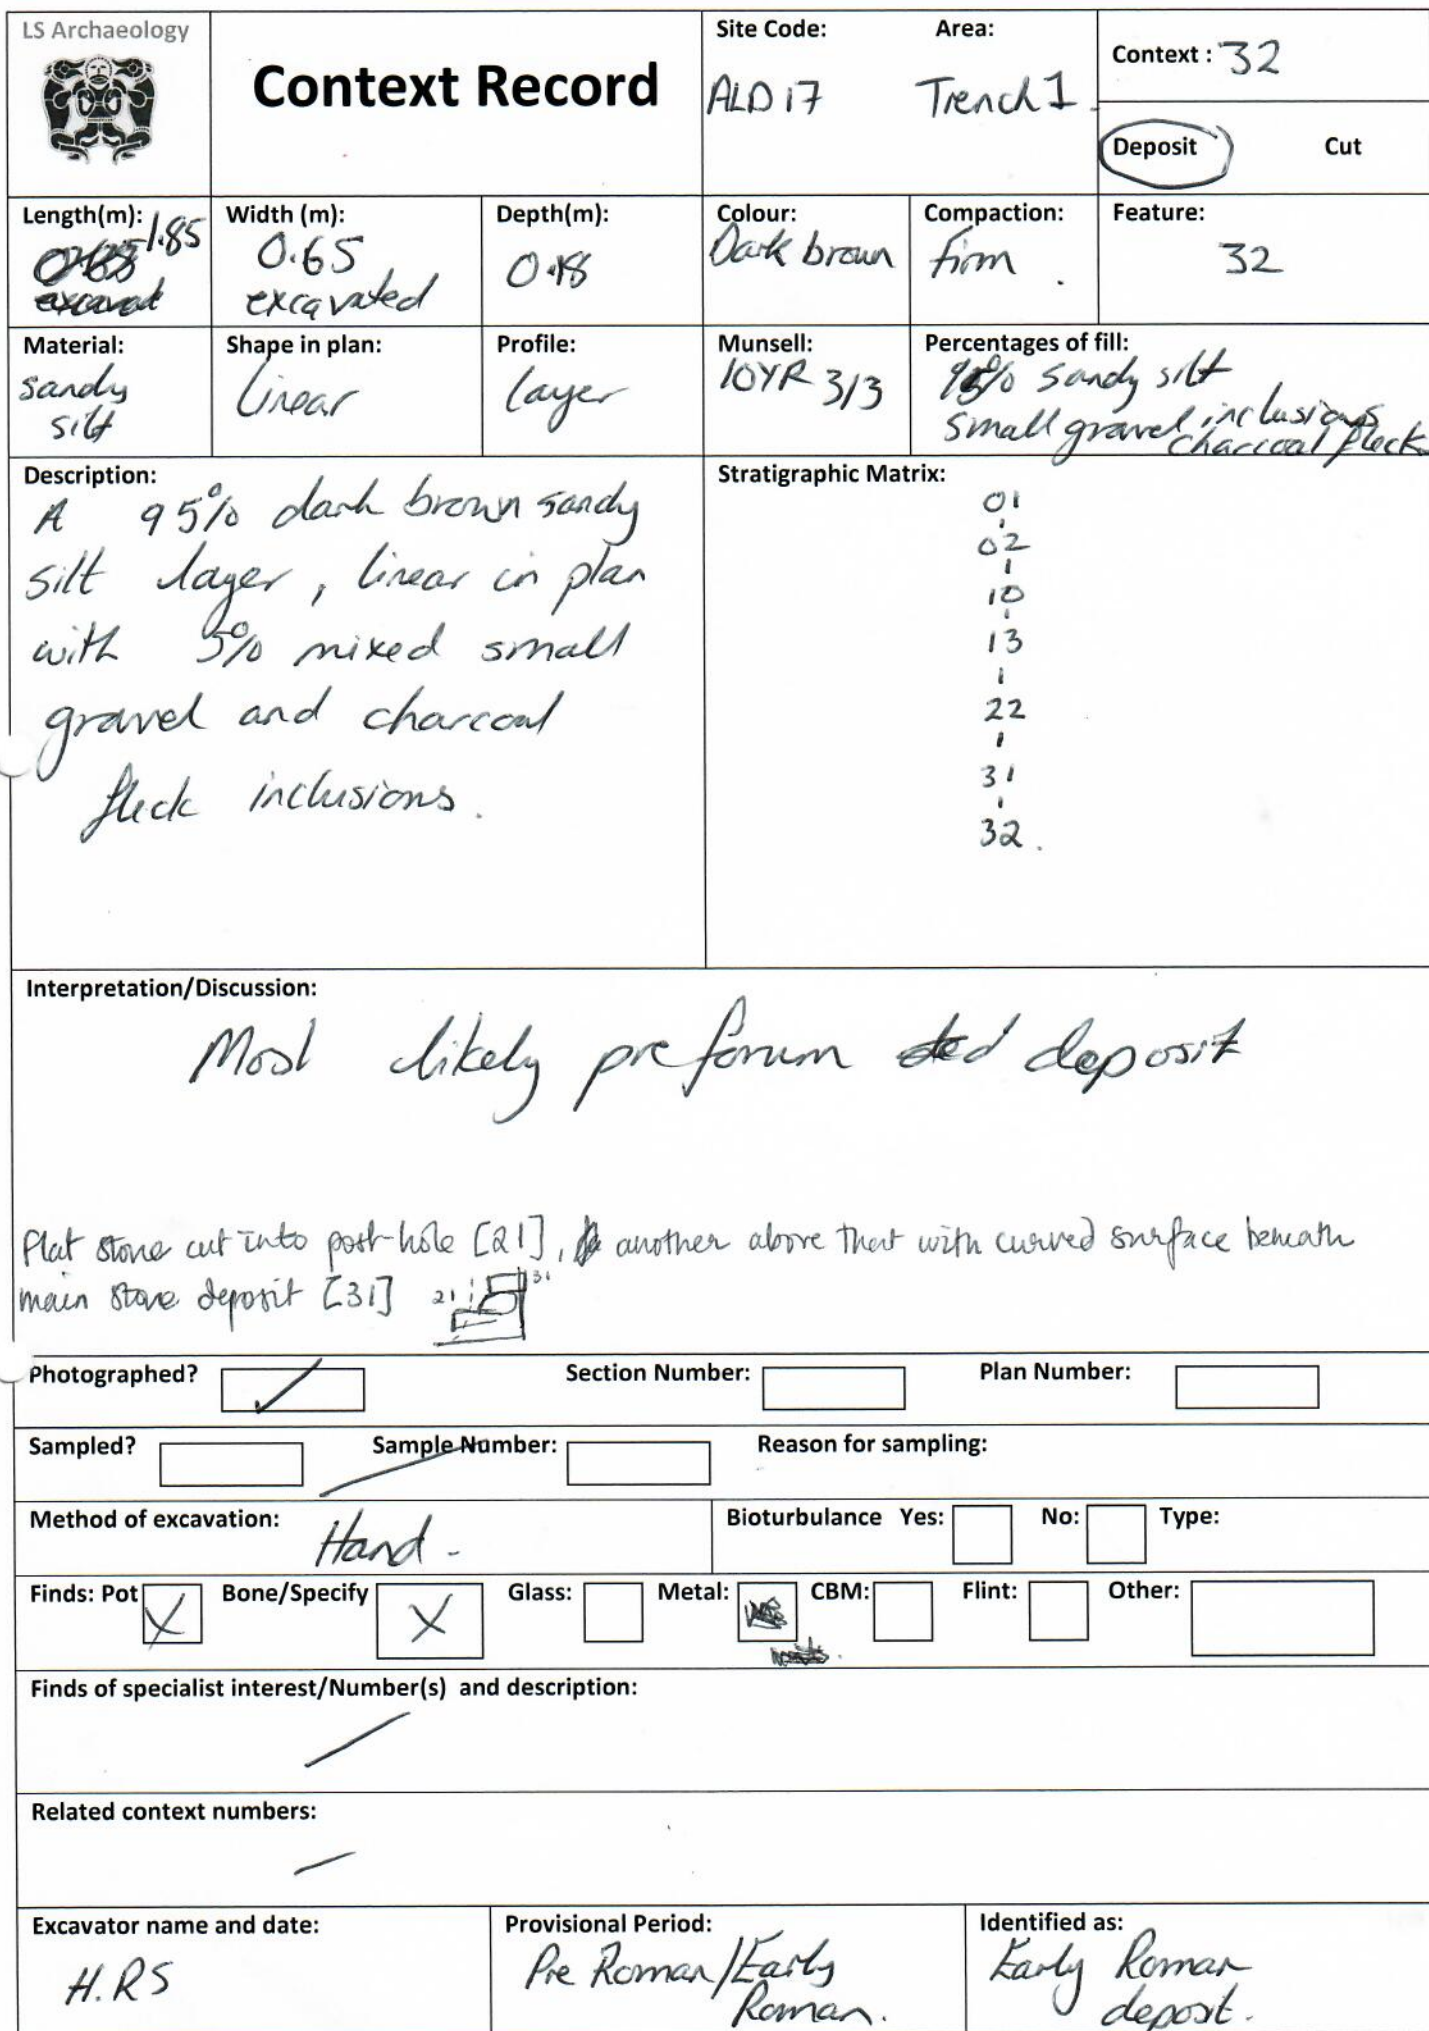 LS Archaeology
Context Record
Site Code:
ALD 17
Area:
Trench 1
Context : 32
Deposit
Cut
Length(m): 1.85
Width (m):
0.65
excavated
Depth(m):
0.18
Colour:
Dark brown
Compaction:
firm
Feature:
32
Material:
sandy
silt
Shape in plan:
Linear
Profile:
layer
Munsell:
10YR 3/3
Percentages of fill:
95% sandy silt
small gravel inclusions
charcoal fleck
Description:
A 95% dark brown sandy
silt layer, linear in plan
with 5% mixed small
gravel and charcoal
fleck inclusions.
Stratigraphic Matrix:
01
02
10
13
22
31
32.
Interpretation/Discussion:
Most likely pre forum deposit
Flat stone cut into post-hole [21], another above that with curved surface beneath
main stone deposit [31]
21
31
Photographed?
Section Number:
Plan Number:
Sampled?
Sample Number:
Reason for sampling:
Method of excavation:
Hand -
Bioturbulance Yes:
No:
Type:
Finds: Pot X
Bone/Specify X
Glass:
Metal:
CBM:
Flint:
Other:
Finds of specialist interest/Number(s) and description:
Related context numbers:
Excavator name and date:
H.RS
Provisional Period:
Pre Roman/Early
Roman.
Identified as:
Early Roman
deposit.